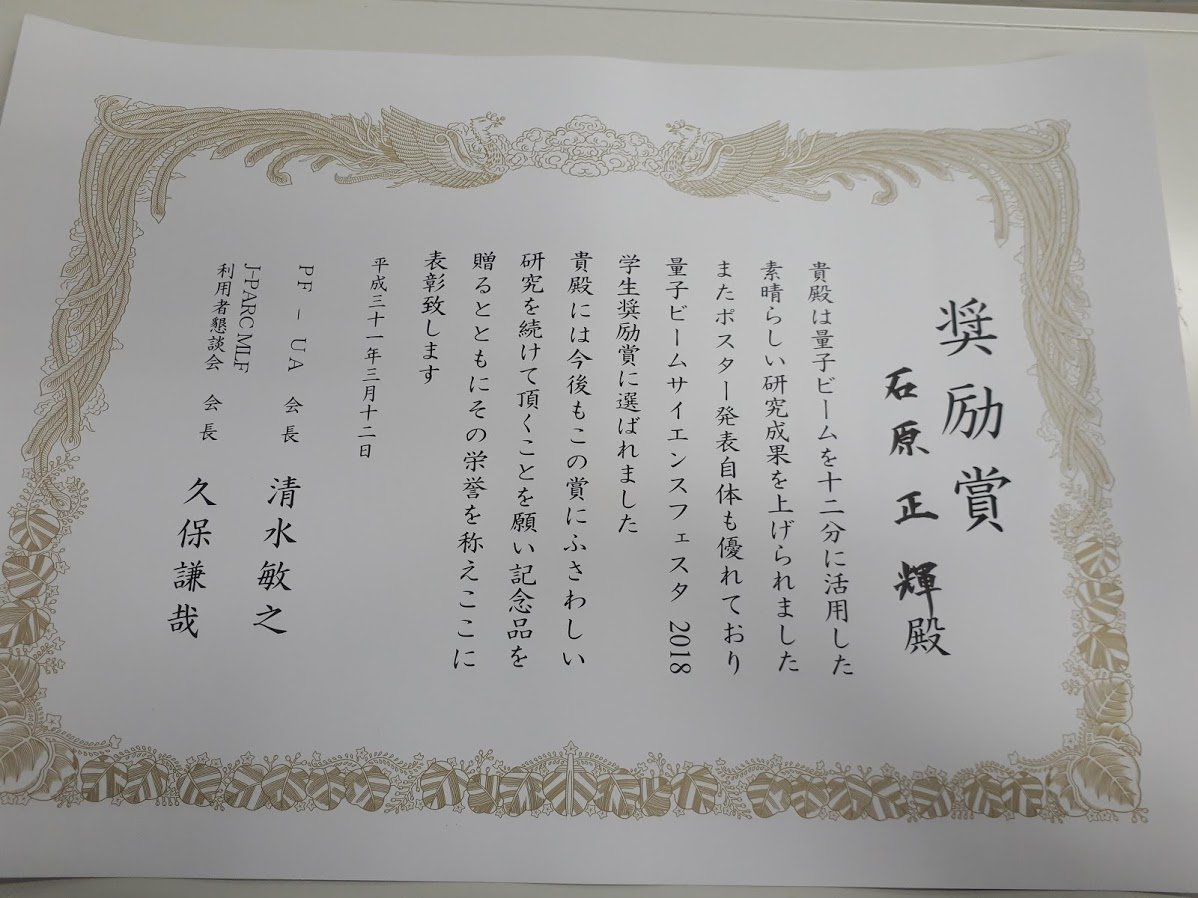 奨励賞
石原正輝殿
貴殿は量子ビームを十二分に活用した
素晴らしい研究成果を上げられました
またポスター発表自体も優れており
量子ビームサイエンスフェスタ 2018
学生奨励賞に選ばれました
貴殿には今後もこの賞にふさわしい
研究を続けて頂くことを願い記念品を
贈るとともにその栄誉を称えここに
表彰致します
平成三十一年三月十二日
PF－UA 会長 清水敏之
J-PARC MLF
利用者懇談会 会長 久保謙哉